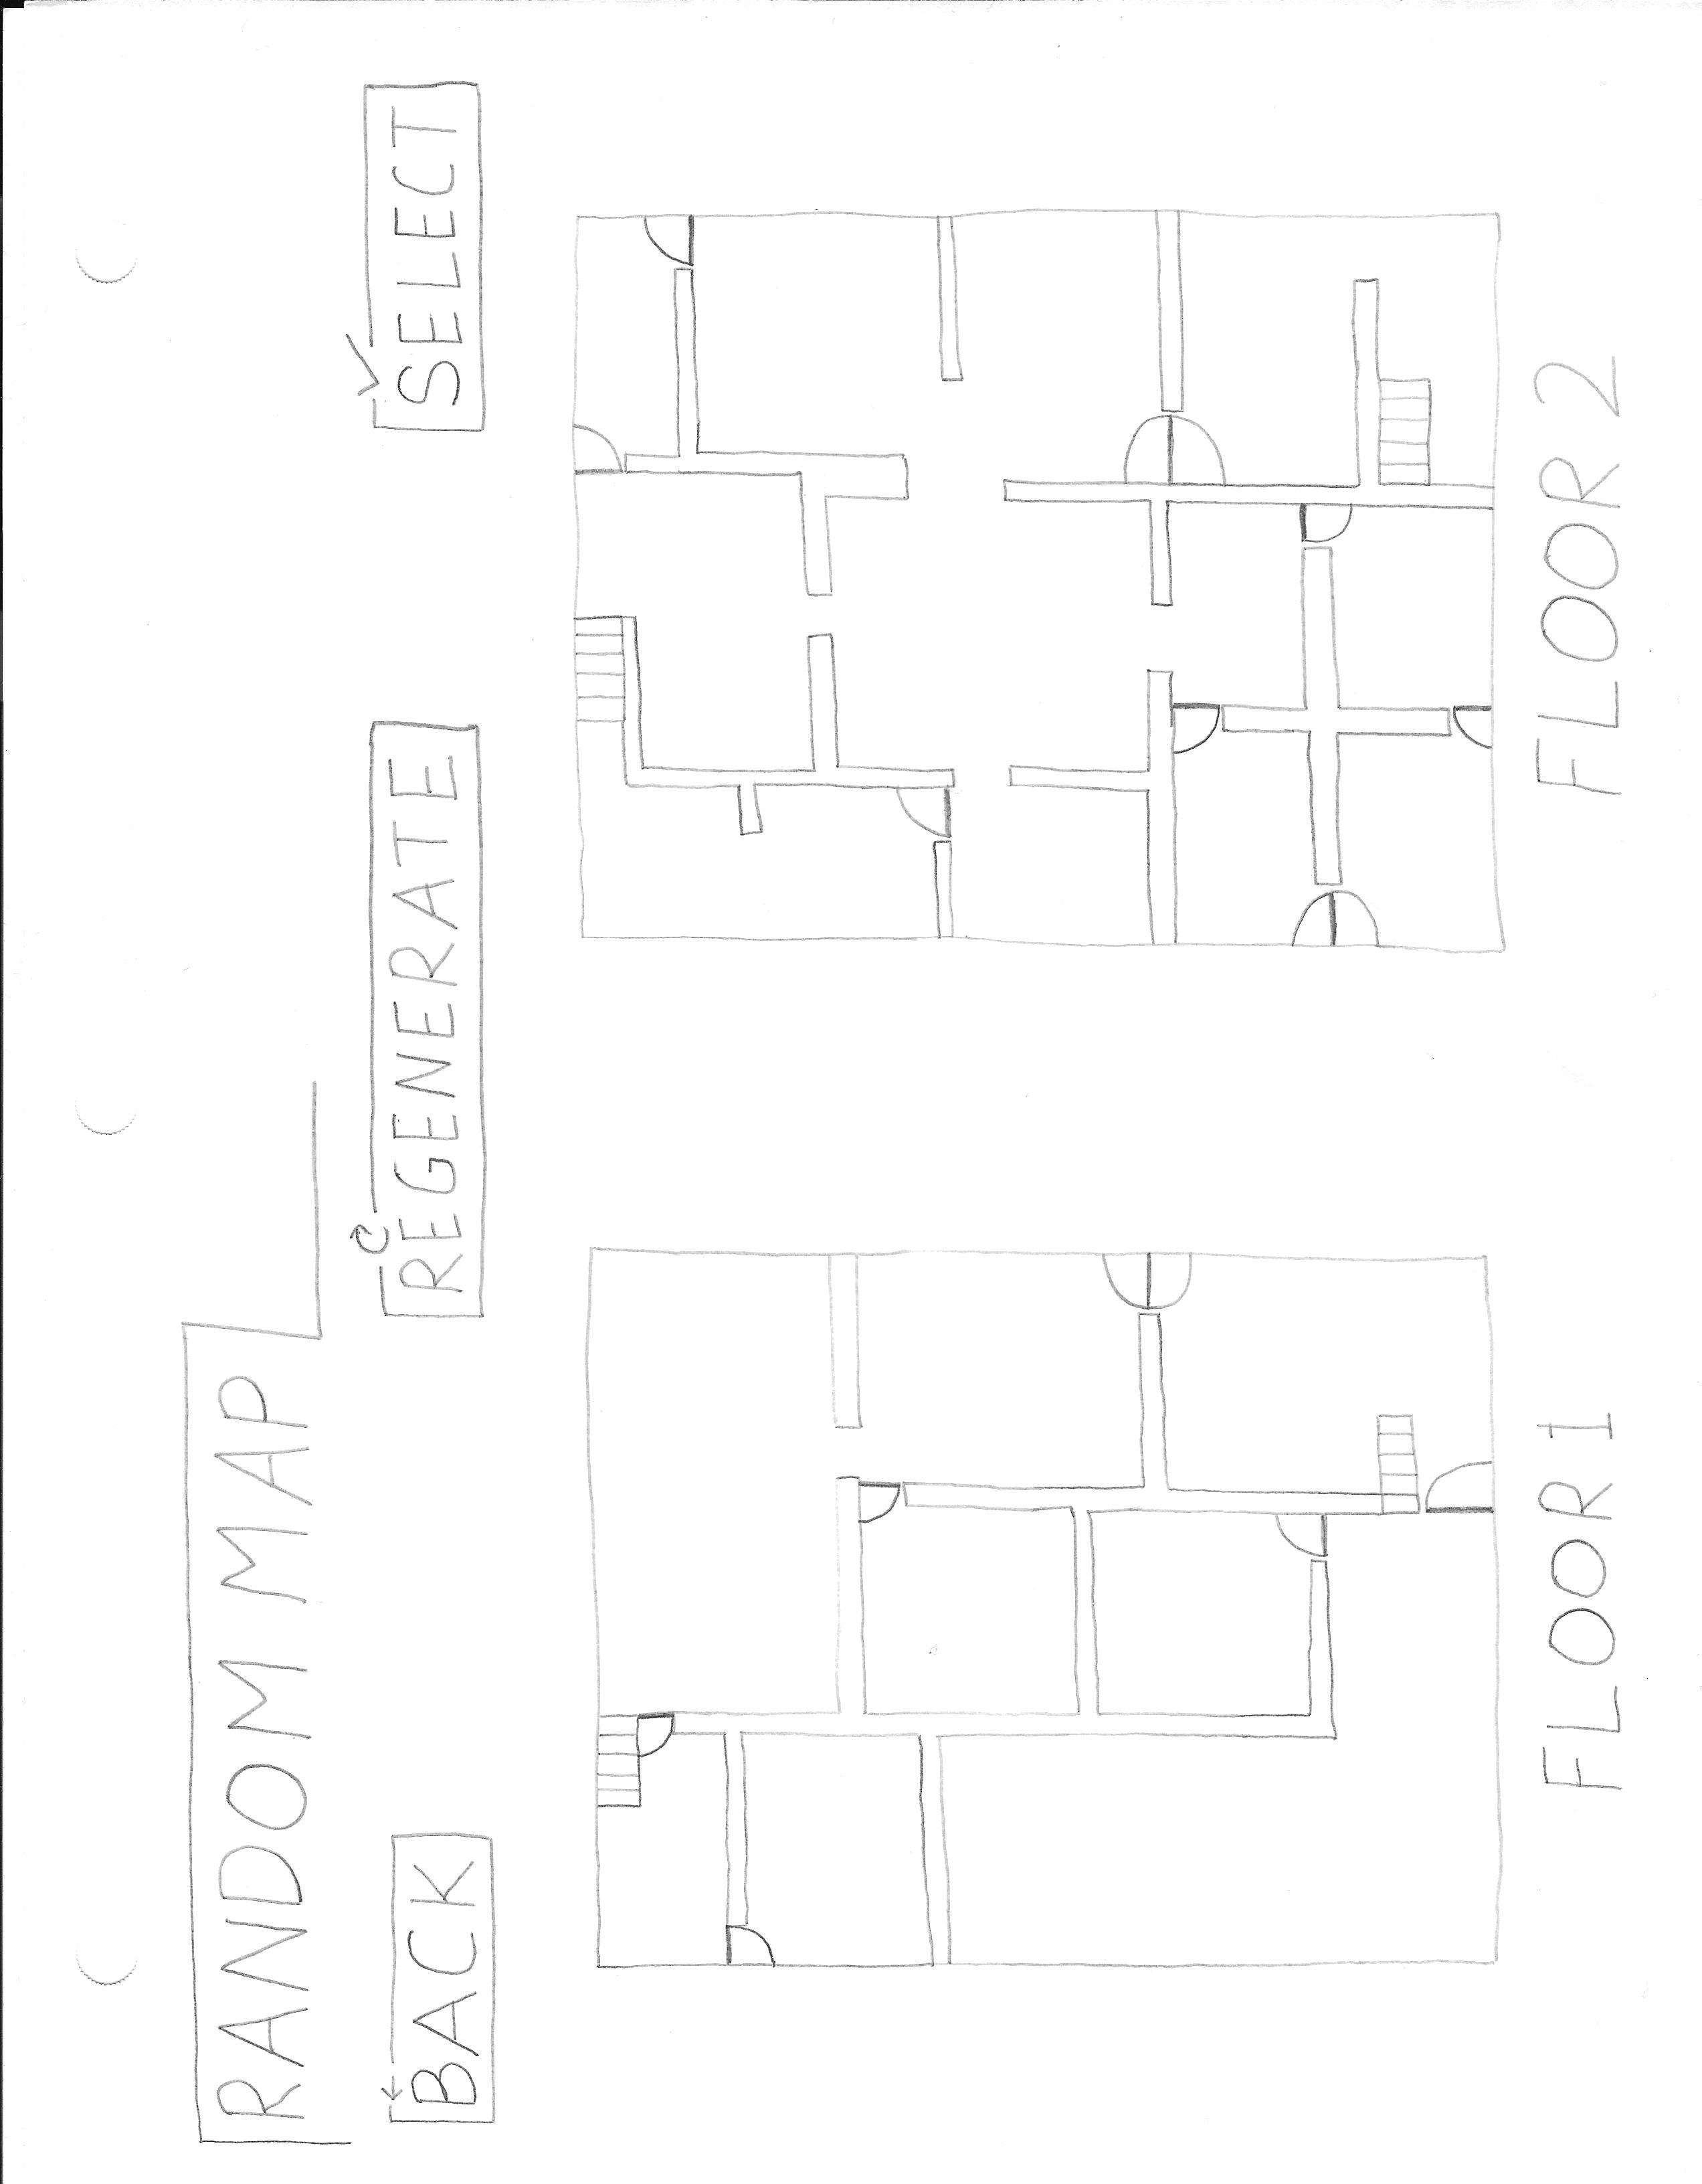 RANDOM MAP
BACK
REGENERATE
SELECT
FLOOR 1
FLOOR 2